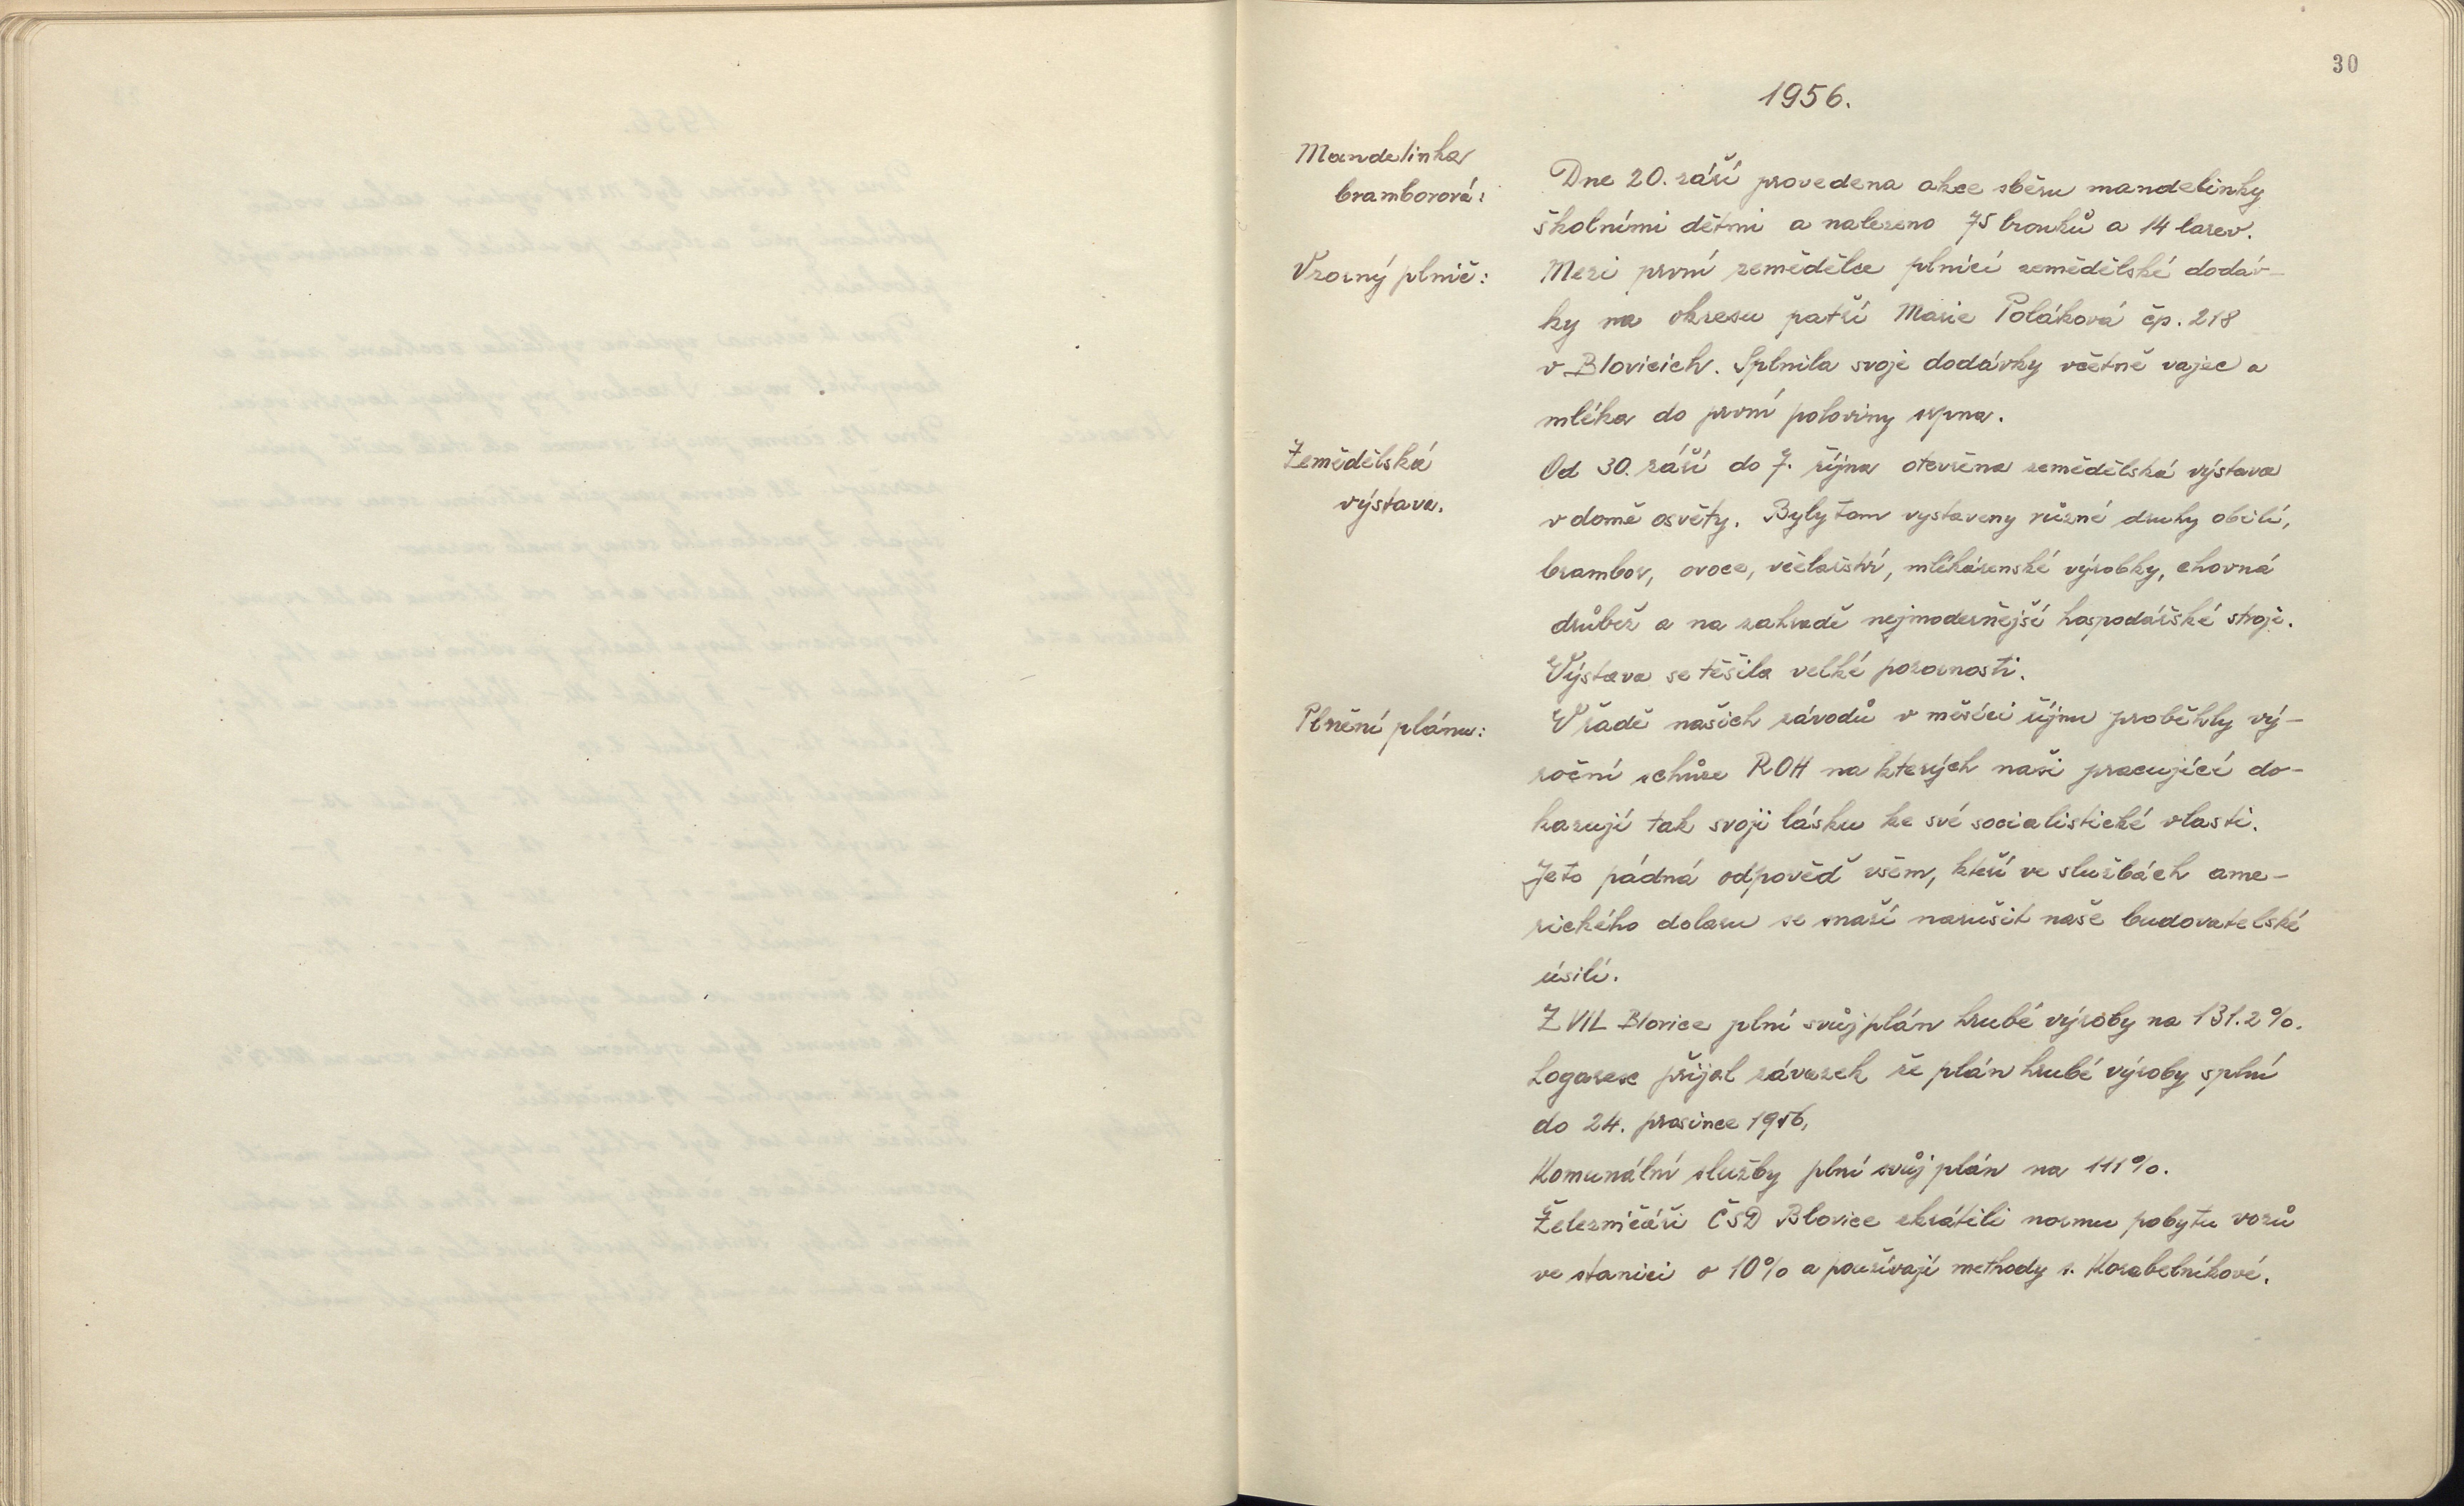 30
1956.
Mandelinka
bramborová:
Dne 20. září provedena akce sběru mandelinky
školními dětmi a nalezeno 75 brouků a 14 larev.
Vzorný plnič:
Mezi první zemědělce plnící zemědělské dodáv-
ky na okresu patří Marie Poláková čp. 218
v Blovicích. Splnila svoje dodávky včetně vajec a
mléka do první poloviny srpna.
Zemědělská
výstava.
Od 30. září do 7. října otevřena zemědělská výstava
v domě osvěty. Byly tam vystaveny různé druhy obilí,
brambor, ovoce, včelařství, mlékárenské výrobky, chovná
drůbež a na zahradě nejmodernější hospodářské stroje.
Výstava se těšila velké pozornosti.
Plnění plánu:
V řadě našich závodů v měsíci říjnu proběhly vý-
roční schůze ROH na kterých naši pracující do-
kazují tak svoji lásku ke své socialistické vlasti.
Je to pádná odpověď všem, kteří ve službách ame-
rického dolaru se snaží narušit naše budovatelské
úsilí.
ZVIL Blovice plní svůj plán hrubé výroby na 131.2%.
Logarex přijal závazek že plán hrubé výroby splní
do 24. prosince 1956,
Komunální služby plní svůj plán na 111%.
Železničáři ČSD Blovice zkrátili normu pobytu vozů
ve stanici o 10% a používají methody s. Korabelníkové.